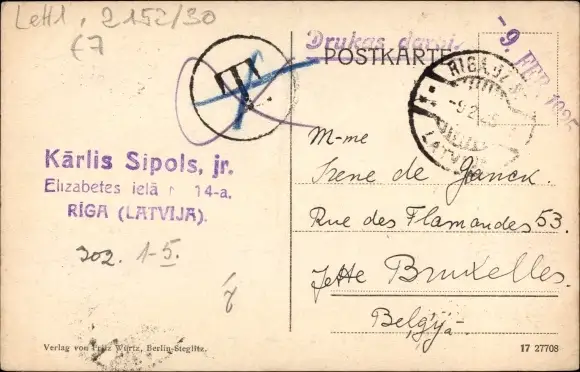 Lett1, 2152/30
€7
Drukas darbi.
-9. FEB 1925
POSTKARTE
T
RIGA
-9.2.25
LATVIJA
Kārlis Sipols, jr.
Elizabetes ielā 14-a.
RĪGA (LATVIJA).
302. 1-5.
M-me
Irene de Janck.
Rue des Flamandes 53.
Jette Bruxelles.
Beļģijā
Verlag von Fritz Würtz, Berlin-Steglitz.
17 27708